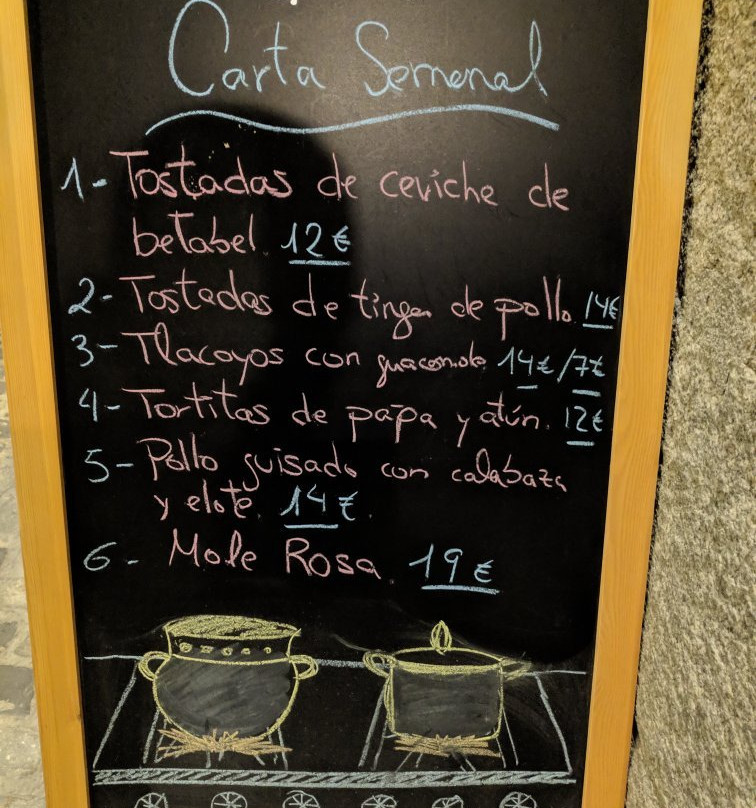 Carta Semanal
1- Tostadas de ceviche de
betabel. 12€
2- Tostadas de tinga de pollo. 14€
3- Tlacoyos con guacamole. 14€/7€
4- Tortitas de papa y atún. 12€
5- Pollo guisado con calabaza
y elote. 14€.
6- Mole Rosa. 19€